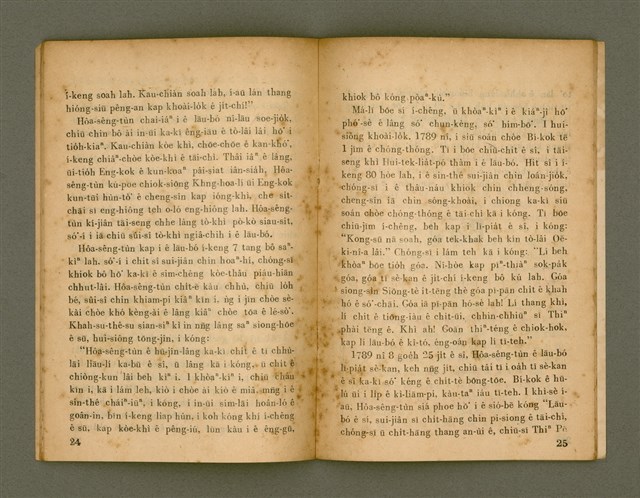 í-keng soah lah. Kau-chiàn soah lah, í-āu lán thang
hióng-siū pêng-an kap khoài-lo̍k ê ji̍t-chí!"
Hôa-sēng-tùn chai-iáⁿ i ê lāu-bó nî-lāu
chiū chìn bô ài in-ūi ka-kī êng-iāu ê tō-lâi lâi hō͘ i
tio̍h-kiaⁿ. Kau-chiàn kòe khì, chōe-chōe ê kan-khó͘,
í-keng chiâⁿ-chòe kòe-khì ê tāi-chì. Thâi iâⁿ ê lâng,
ūi-tio̍h Eng-kok ê kun-koaⁿ pâi-siat iân-sia̍h, Hôa-
sēng-tùn kú-pōe chiok-siōng Kheng-hoa-lī ūi Eng-kok
kun-tūi hún-tó͘ ê cheng-sîn kap ióng-khì, che sit-
chāi sī eng-hiông teh o-ló eng-hiông lah. Hôa-sēng-
tùn kí-jiân tāi-seng chhe lâng tò-khì pò-kò siau-sit,
só͘-í i iā chiū sûi-sî tò-khì ngiâ-chih i ê lāu-bó.
Hôa-sēng-tùn kap i ê lāu-bó í-keng 7 tang bô saⁿ-
kìⁿ lah. só͘-í i chit sî sui-jiân chin hoaⁿ-hí, chóng-sī
khiok bô hō͘ ka-kī ê sim-chêng kòe-thâu piáu-hiān
chhut-lâi. Hôa-sēng-tùn chit-ê káu chhù, chiū lo̍h
bé, sûi-sî chìn khiam-pi kìⁿ kīn i. ūg i jīn chòe sè-
kài chòe khó kèng-ài ê lâng kiâⁿ chòe tōa ê lé-sò͘.
Khah-su-thê-su sian-siⁿ kì in nn̄g lâng saⁿ siong-hōe
ê sū, huì-siông tōng-jîn, i kóng:
"Hôa-sēng-tùn ê hū-jîn-lâng ka-kī chi̍t ê tī chhù-
lāi liāu-lí ka-bū ê sî, ū lâng kā i kóng, ū chi̍t ê
chiòng-kun lâi beh kìⁿ i. I khòaⁿ-kìⁿ i, chiū chhn̄
kīn i, kā i lám leh, kiò i chòe ài kiò ê miâ. mn̄g i ê
sin-thé cháiⁿ-iūⁿ, i kóng, i in-ūi sim-lāi hoân-ló ê
goân-in, bīn í-keng liap hûn, i koh kóng khí í-chêng
ê sū, kap kòe-khì ê pêng-iú, lūn kàu i ê êng-gū,
24
khiok bô kóng pòaⁿ-kú."
Má-lī bóe sī í-chêng, ū khòaⁿ-kìⁿ i ê kiáⁿ-jî hō͘
phó͘-sè ê lâng só͘ chun-kèng, só͘ him-bō͘. I hui-
siông khoài-lo̍k, 1789 nî, i siū soán chòe Bí-kok tē
1 jīm ê chóng-thóng. Tī i bōe chiū-chit ê sî, i tāi-
seng khì Hui-tek-lia̍t-pó thàm i ê lāu-bó. Hit sî i í-
keng 80 hòe lah, i ê sin-thé sui-jiân chin loán-jio̍k,
chóng-sī i ê thâu-náu khiok chin chheng-sóng,
cheng-sîn iā chin sóng-khoài, i chiong ka-kī siū
soán chòe chóng-thóng ê tāi-chì kā i kóng. Tī bōe
chiū-jīm í-chêng, beh kap i lī-pia̍t ê sî, i kóng:
"Kong-sū nā soah, góa tek-khak beh kín tò-lâi Oē-
ki-ní-a lâi." Chóng-sī i lām teh kā i kóng: "Lí beh
khòaⁿ bōe tio̍h góa. Nî-hòe kap pīⁿ-thiàⁿ sok-pa̍k
góa, góa tī sè-kan ê ji̍t-chí í-keng bô kú lah. Góa
siong-sìn Siōng-tè it-tēng thè góa pī-pān chi̍t ê khah
hó ê só͘-chāi. Góa iā pī-pān hó-sè lah! Lí thang khì,
lí chi̍t ê tiōng-iàu ê chit-ūi, chhin-chhiūⁿ sī Thiⁿ
phài têng ê. Khì ah! Goān Thiⁿ-têng ê chiok-hok,
kap lí lāu-bó ê kî-tó, éng-oán kap lí tī-teh."
1789 nî 8 goe̍h 25 ji̍t ê sî, Hôa-sēng-tùn ê lāu-bó
lī-pia̍t sè-kan, keh nn̄g ji̍t, chiū tâi tī i oa̍h tī sè-kan
ê sî ka-kī só͘ kéng ê chit-tè bōng-tōe. Bí-kok ê hū-
lú ūi i li̍p ê kì-liām-pi, kàu-taⁿ iáu tī-teh. I khì-sè í-
āu, Hôa-sēng-tùn siá phoe hō͘ i ê sió-bē kóng "Lāu-
bó ê sí, sui-jiân sī chit-hāng chin pi-siong ê tāi-chì,
chóng-sī ū chit-hāng thang an-ùi ê, chiū-sī Thiⁿ Pē
25